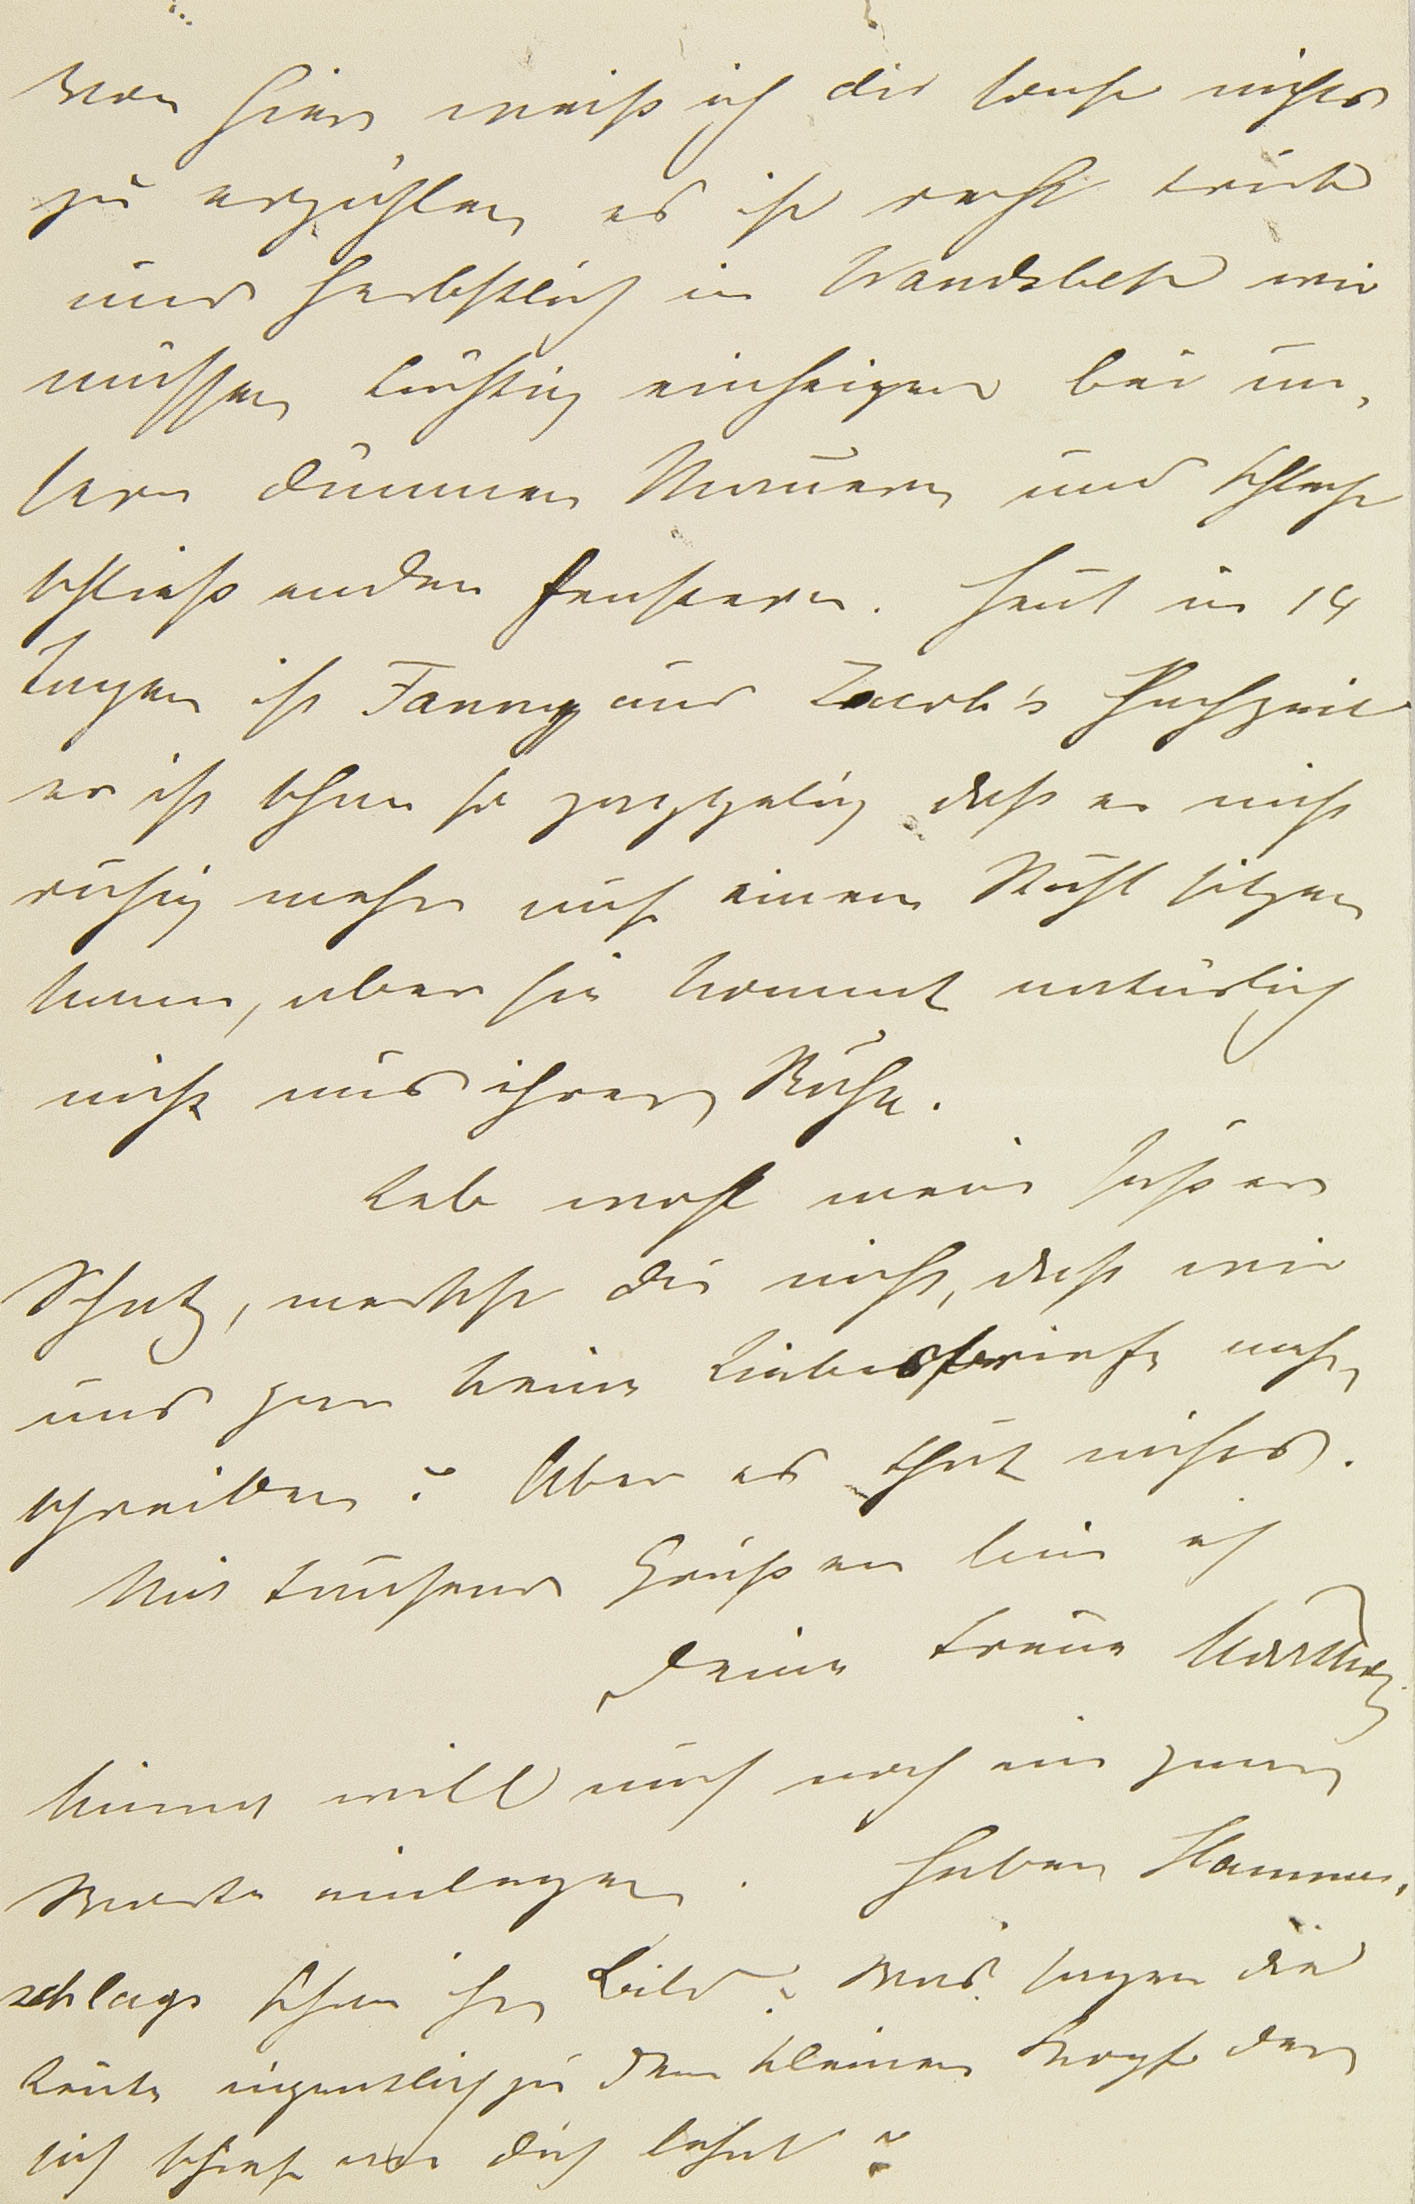 Von hier weiß ich dir sonst nichts
zu erzählen, es ist recht trüb
und herbstlich in Wandsbek wir
müssen tüchtig einheizen bei un-
sern dünnen Mauern und schlecht
schließenden Fenstern. Heut in 14
Tagen ist Fanny und Jacob's Hochzeit
er ist schon so zappelig daß er nicht
ruhig mehr auf einem Stuhl sitzen
kann, aber sie kommt natürlich
nicht aus ihrer Ruhe.
Leb wohl mein süßer
Schatz, merkst du nicht, daß wir
uns gar keine Liebesbriefe mehr
schreiben? Aber es thut nichts.
Mit tausend Grüßen bin ich
deine treue Martha
Minna will auch noch ein paar
Worte einlegen. Haben Hammer-
schlags schon ihr Bild? Was sagen die
Leute eigentlich zu dem kleinen Kopf der
sich schief an dich lehnt?